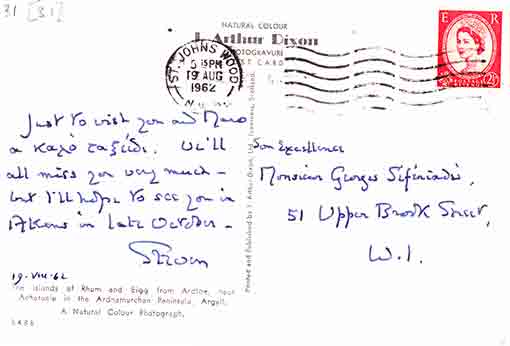 31 [31]
NATURAL COLOUR
J. Arthur Dixon
PHOTOGRAVURE
POST CARD
E R
2½
ST. JOHNS WOOD
5 15PM
19 AUG
1962
N.W.
Just to wish you and Maro
a καλό ταξείδι. We'll
all miss you very much –
but I'll hope to see you in
Athens in late October –
19-VIII-62
Son Excellence
Monsieur Georges Seferiadis,
51 Upper Brook Street,
W.1.
The islands of Rhum and Eigg from Ardtoe, near
Acharacle in the Ardnamurchan Peninsula, Argyll.
A Natural Colour Photograph.
Printed and Published by J. Arthur Dixon, Ltd., Inverness, Scotland.